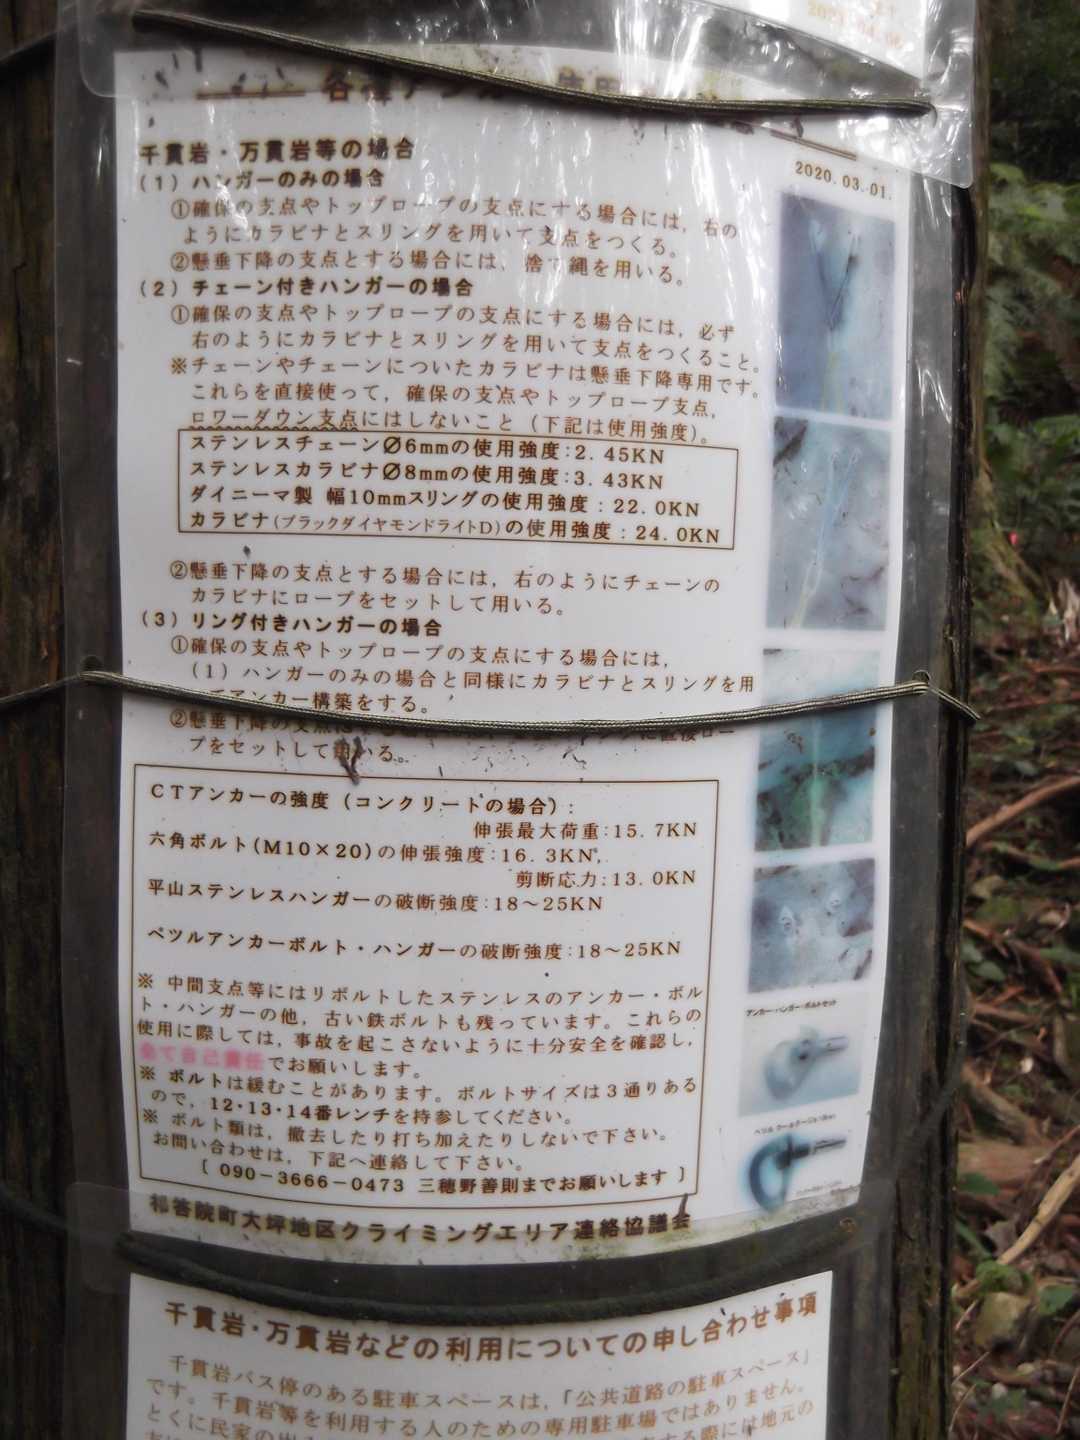 千貫岩・万貫岩等の場合
2020.03.01.
(1) ハンガーのみの場合
①確保の支点やトップロープの支点にする場合には，右の
ようにカラビナとスリングを用いて支点をつくる。
②懸垂下降の支点とする場合には，捨て縄を用いる。
(2) チェーン付きハンガーの場合
①確保の支点やトップロープの支点にする場合には，必ず
右のようにカラビナとスリングを用いて支点をつくること。
※チェーンやチェーンについたカラビナは懸垂下降専用です。
これらを直接使って，確保の支点やトップロープ支点，
ロワーダウン支点にはしないこと（下記は使用強度）。
ステンレスチェーン∅6mmの使用強度：2.45KN
ステンレスカラビナ∅8mmの使用強度：3.43KN
ダイニーマ製 幅10mmスリングの使用強度：22.0KN
カラビナ(ブラックダイヤモンドライトD)の使用強度：24.0KN
②懸垂下降の支点とする場合には，右のようにチェーンの
カラビナにロープをセットして用いる。
(3) リング付きハンガーの場合
①確保の支点やトップロープの支点にする場合には，
(1) ハンガーのみの場合と同様にカラビナとスリングを用
てアンカー構築をする。
②懸垂下降の支点
直接ロー
プをセットして用いる。
CTアンカーの強度（コンクリートの場合）：
伸張最大荷重：15.7KN
六角ボルト(M10×20)の伸張強度：16.3KN，
剪断応力：13.0KN
平山ステンレスハンガーの破断強度：18～25KN
ペツルアンカーボルト・ハンガーの破断強度：18～25KN
※ 中間支点等にはリボルトしたステンレスのアンカー・ボル
ト・ハンガーの他，古い鉄ボルトも残っています。これらの
使用に際しては，事故を起こさないように十分安全を確認し，
全て自己責任でお願いします。
※ ボルトは緩むことがあります。ボルトサイズは3通りある
ので，12・13・14番レンチを持参してください。
※ ボルト類は，撤去したり打ち加えたりしないで下さい。
お問い合わせは，下記へ連絡して下さい。
〔 090－3666－0473 三穂野善則までお願いします 〕
アンカー・ハンガー・ボルトセット
祁答院町大坪地区クライミングエリア連絡協議会
千貫岩・万貫岩などの利用についての申し合わせ事項
千貫岩バス停のある駐車スペースは，「公共道路の駐車スペース」
です。千貫岩等を利用する人のための専用駐車場ではありません。
とくに民家の
する際には地元の